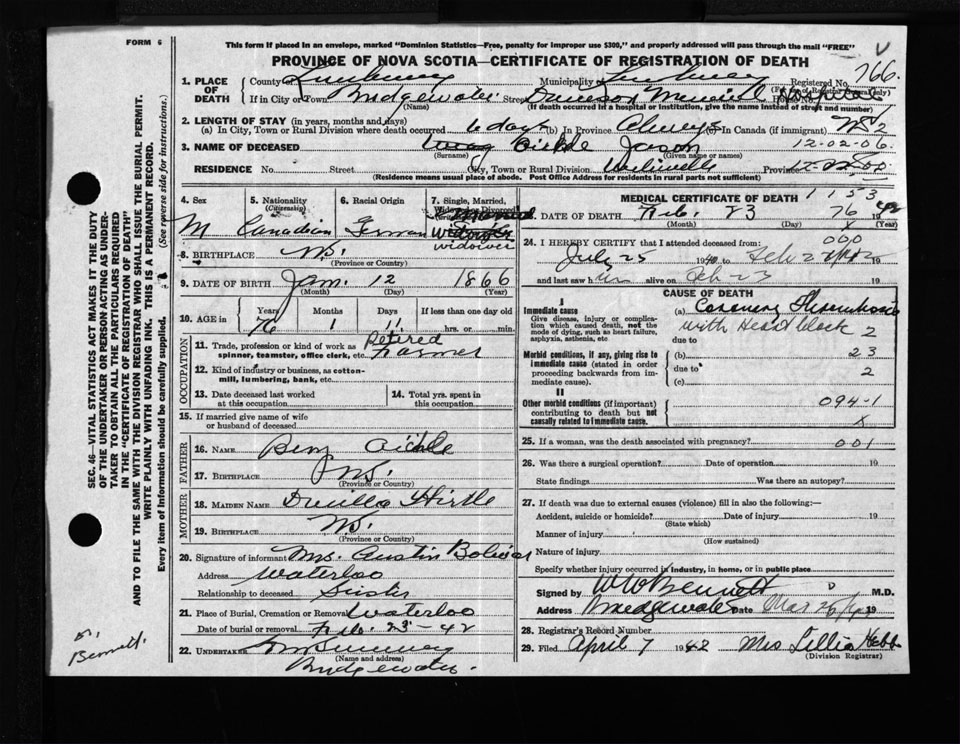 FORM 6
This form if placed in an envelope, marked "Dominion Statistics—Free, penalty for improper use $300," and properly addressed will pass through the mail "FREE"
PROVINCE OF NOVA SCOTIA—CERTIFICATE OF REGISTRATION OF DEATH
1. PLACE OF DEATH County of Lunenburg Municipality of Lunenburg Registered No. 766.
If in City or Town Bridgewater Street Memorial Hospital
(Name) (If death occurred in a hospital or institution, give the name instead of street and number)
2. LENGTH OF STAY (in years, months and days)
(a) In City, Town or Rural Division where death occurred 6 days (b) In Province Always (c) In Canada (if immigrant)
3. NAME OF DECEASED Jason 12-02-06
(Surname) (Given name or names)
RESIDENCE No. Street City, Town or Rural Division Province
(Residence means usual place of abode. Post Office Address for residents in rural parts not sufficient)
4. Sex M
5. Nationality (Citizenship) Canadian
6. Racial Origin German
7. Single, Married, Widowed or Divorced widower
8. BIRTHPLACE N.S.
(Province or Country)
9. DATE OF BIRTH Jan. 12 1866
(Month) (Day) (Year)
10. AGE in Years 76 Months 1 Days 11 If less than one day old hrs. or min.
OCCUPATION
11. Trade, profession or kind of work as spinner, teamster, office clerk, etc. Retired Farmer
12. Kind of industry or business, as cotton-mill, lumbering, bank, etc.
13. Date deceased last worked at this occupation
14. Total yrs. spent in this occupation
15. If married give name of wife or husband of deceased
FATHER
16. NAME Benj
17. BIRTHPLACE N.S.
(Province or Country)
MOTHER
18. MAIDEN NAME Drucilla Hirtle
19. BIRTHPLACE N.S.
(Province or Country)
20. Signature of informant Mrs. Austin Bolivar
Address Waterloo
Relationship to deceased Sister
21. Place of Burial, Cremation or Removal Waterloo
Date of burial or removal Feb. 23-42
22. UNDERTAKER
(Name and address)
Bridgewater
MEDICAL CERTIFICATE OF DEATH 1153
23. DATE OF DEATH Feb. 23 76 1942
(Month) (Day) (Year)
24. I HEREBY CERTIFY that I attended deceased from: 000
July 25 1940 to Feb 22
and last saw h im alive on Feb 23 19
CAUSE OF DEATH
I
Immediate cause
Give disease, injury or complication which caused death, not the mode of dying, such as heart failure, asphyxia, asthenia, etc
(a) Coronary Thrombosis
with Heart block 2
due to
Morbid conditions, if any, giving rise to immediate cause (stated in order proceeding backwards from immediate cause).
(b) 23
due to 2
(c)
II
Other morbid conditions (if important) contributing to death but not causally related to immediate cause.
094-1
X
25. If a woman, was the death associated with pregnancy? 001
26. Was there a surgical operation? Date of operation 19
State findings Was there an autopsy?
27. If death was due to external causes (violence) fill in also the following:—
Accident, suicide or homicide? Date of injury 19
(State which)
Manner of injury
(How sustained)
Nature of injury
Specify whether injury occurred in industry, in home, or in public place
Signed by W W Bennett M.D.
Address Bridgewater Date Mar 26/42 19
28. Registrar's Record Number
29. Filed April 7 1942 Mrs Lillia Hebb
(Division Registrar)
SEC. 46—VITAL STATISTICS ACT MAKES IT THE DUTY
OF THE UNDERTAKER OR PERSON ACTING AS UNDER-
TAKER TO OBTAIN ALL THE PARTICULARS REQUIRED
IN THE "CERTIFICATE OF REGISTRATION OF DEATH"
AND TO FILE THE SAME WITH THE DIVISION REGISTRAR WHO SHALL ISSUE THE BURIAL PERMIT.
WRITE PLAINLY WITH UNFADING INK. THIS IS A PERMANENT RECORD.
Every item of information should be carefully supplied. (See reverse side for instructions.)
Bennett.